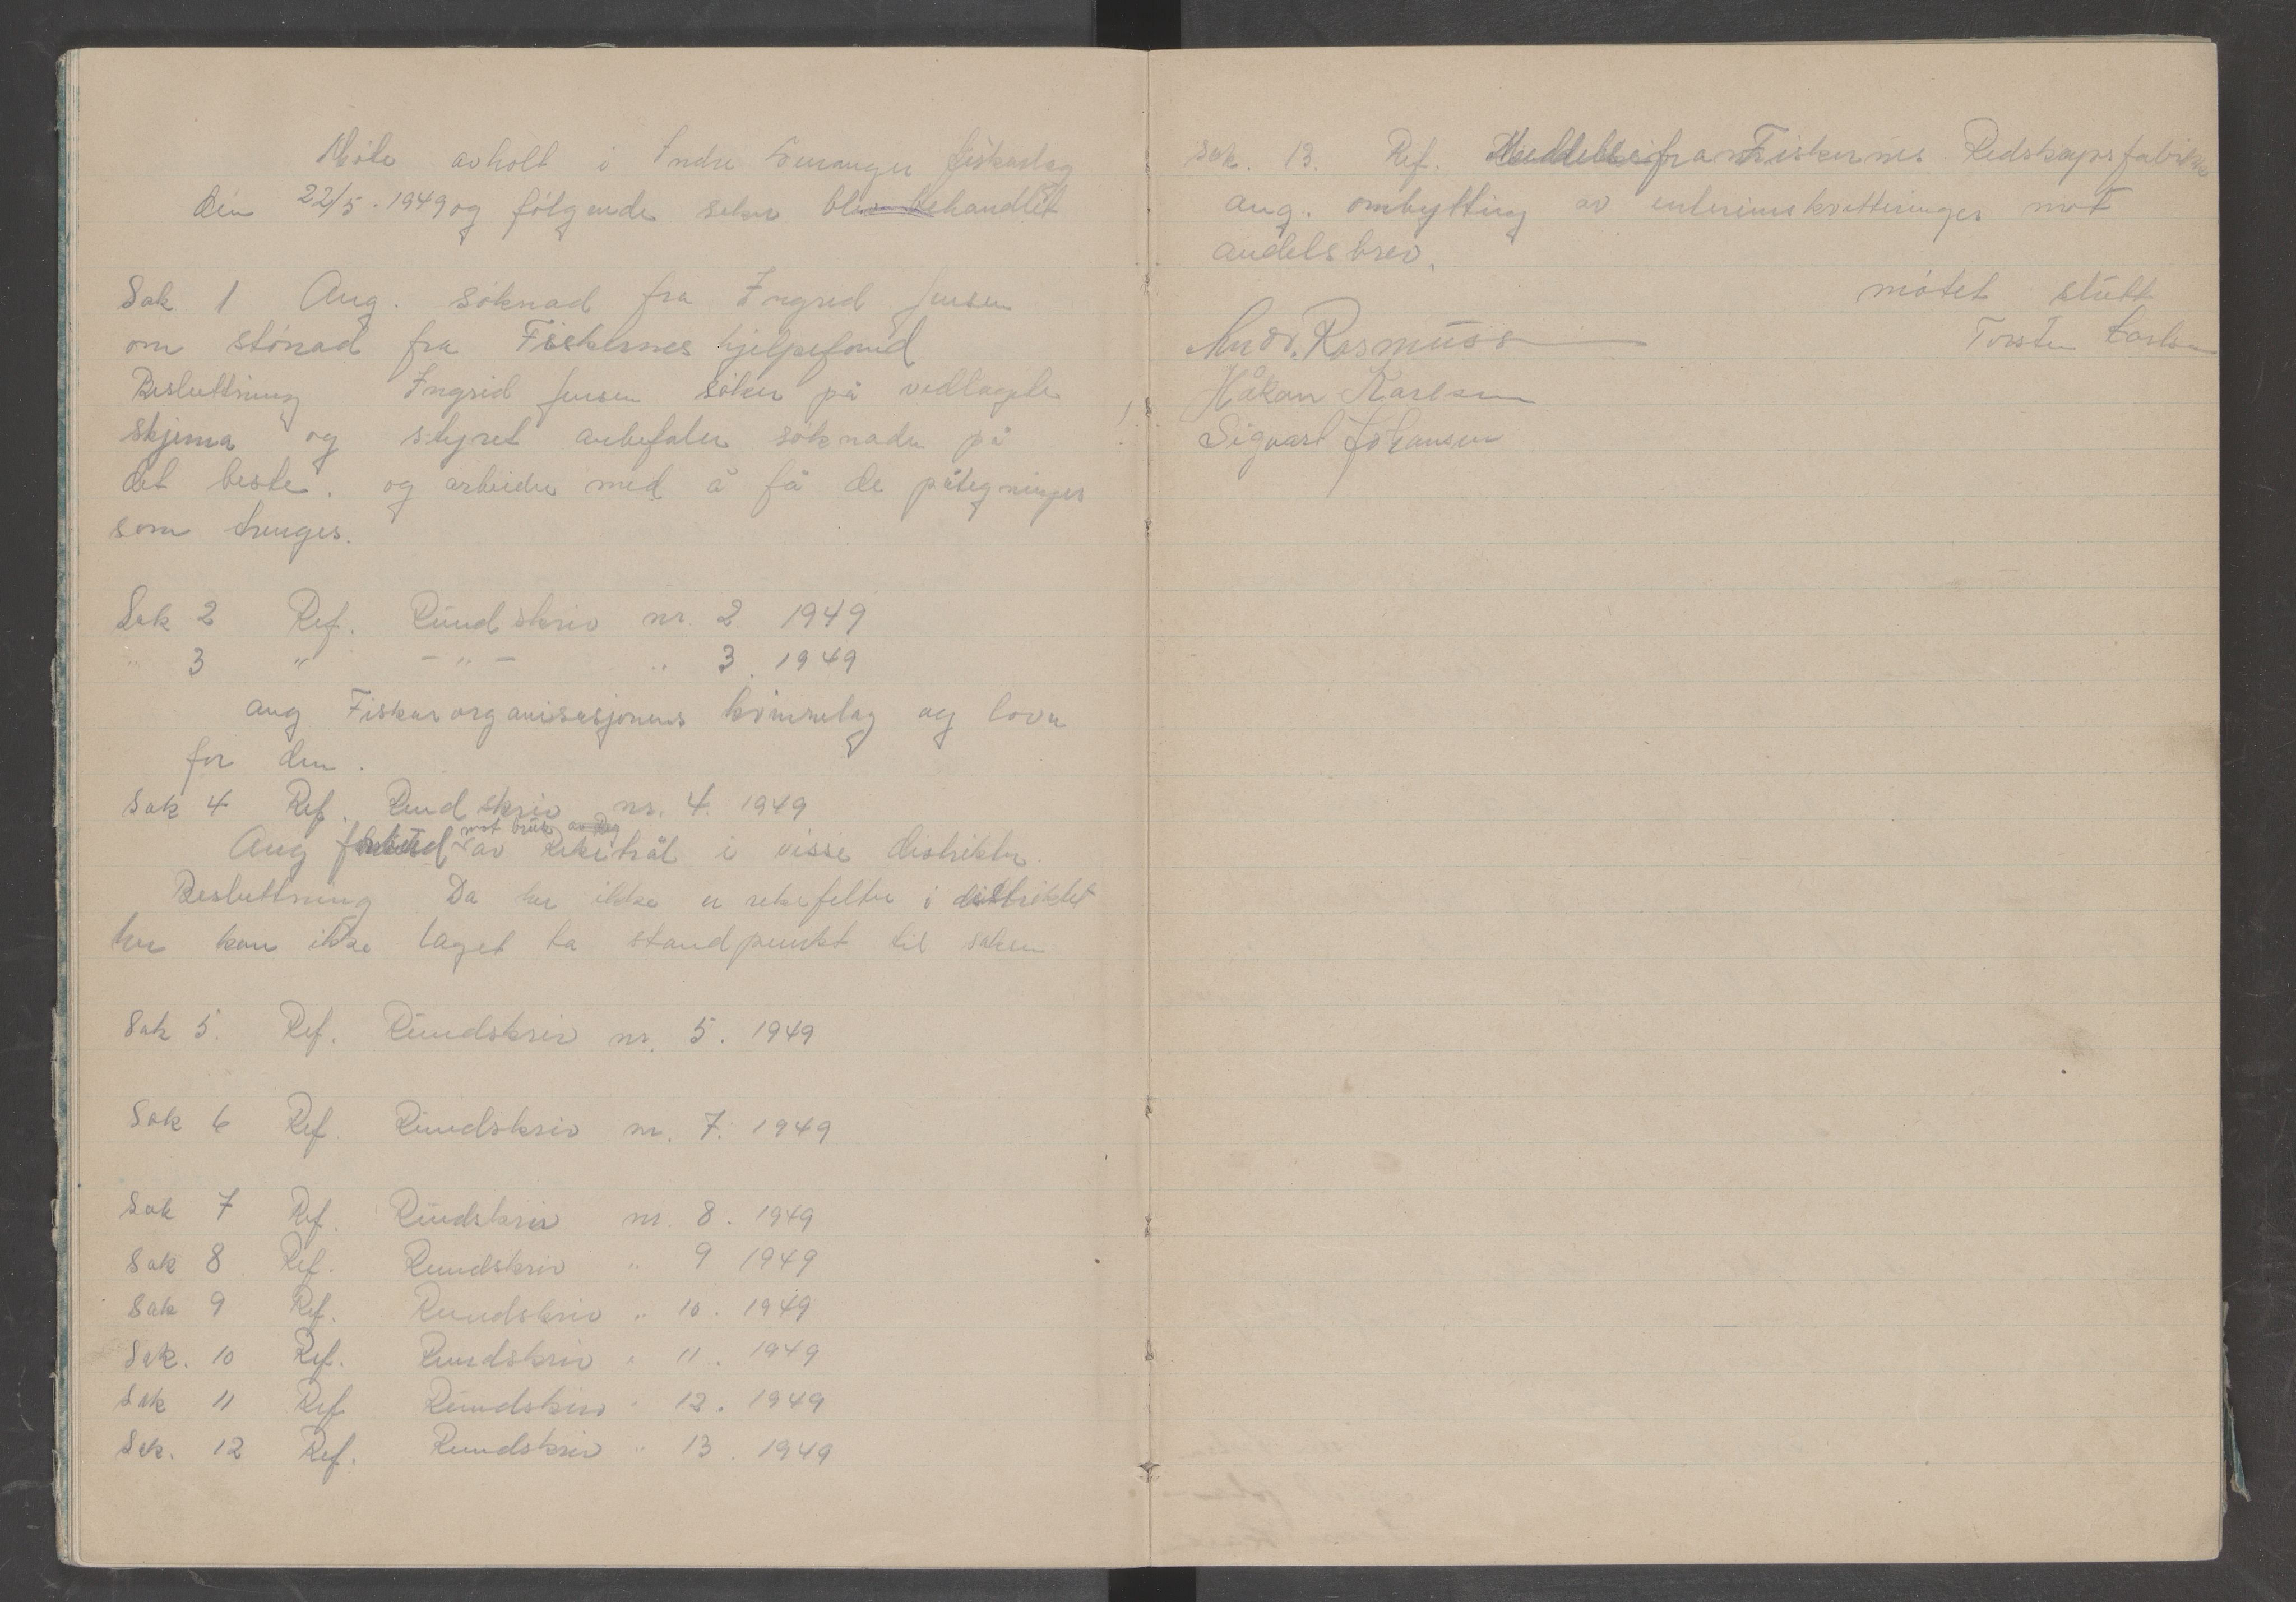 Møte avholt i Indre fiskarlag
den 22/5. 1949 og følgende saker blev behandlet
Sak 1 Ang. søknad fra Ingrid Jensen
om stønad fra Fiskernes hjelpefond
Besluttning Ingrid Jensen søker på vedlagte
skjema og styret anbefaler søknaden på
det beste. og arbeider med å få de påtegninger
som trenges.
Sak 2 Ref. Rundskriv nr. 2 1949
" 3 " - " - " 3. 1949
ang Fiskerorganisasjonens kvinnelag og lover
for den.
Sak 4 Ref. Rundskriv nr. 4. 1949
mot bruk av Reg
Ang forbud av Reketrål i visse distrikter.
Besluttning Da her ikke er rekefelter i distriktet
her kan ikke laget ta standpunkt til saken
Sak 5. Ref. Rundskriv nr. 5. 1949
Sak 6 Ref. Rundskriv nr. 7. 1949
Sak 7 Ref. Rundskriv nr. 8. 1949
Sak 8 Ref. Rundskriv " 9 1949
Sak 9 Ref. Rundskriv " 10. 1949
Sak. 10 Ref. Rundskriv " 11. 1949
Sak 11 Ref Rundskriv " 12. 1949
Sak. 12 Ref. Rundskriv " 13. 1949
Sak. 13. Ref. fra Fiskernes Redskapsfabrikk
ang. ombytting av interimskvitteringer mot
andelsbrev.
møtet slutt
Torsten Karlsen
Andr. Rasmuss
Håkon Karlsen
Sigvart Johansen